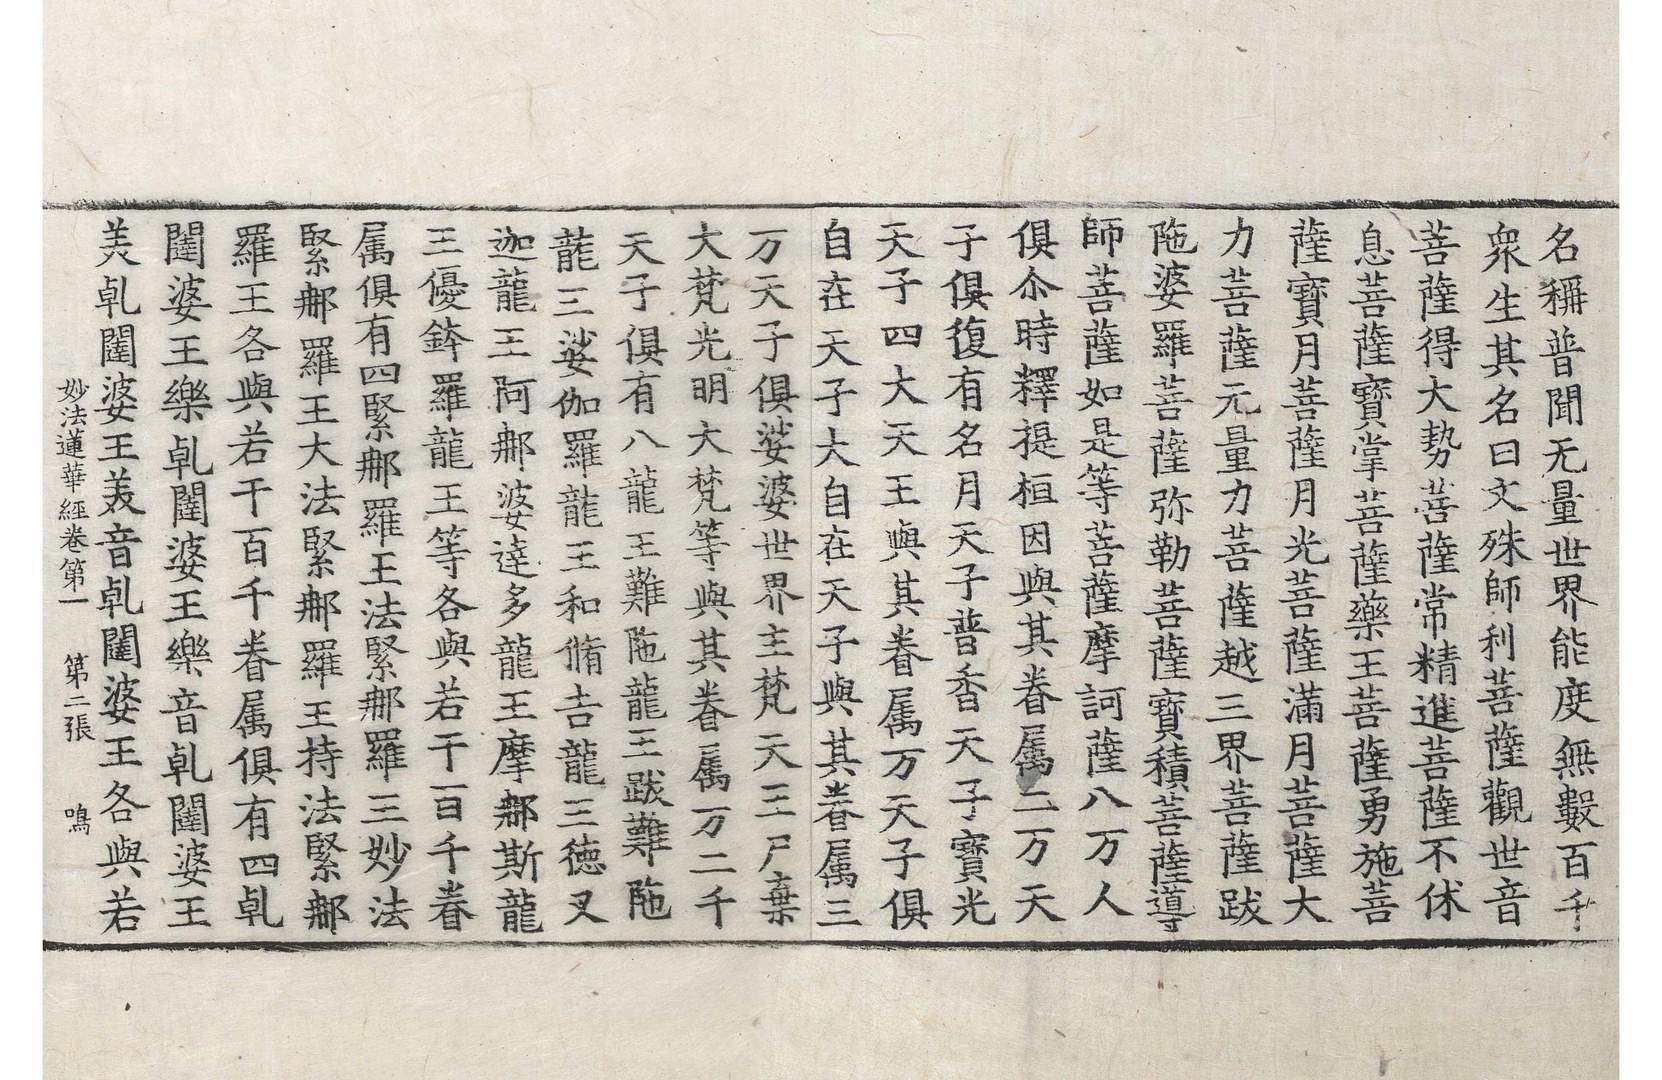 名稱普聞无量世界能度無數百千
衆生其名曰文殊師利菩薩觀世音
菩薩得大勢菩薩常精進菩薩不休
息菩薩寶掌菩薩藥王菩薩勇施菩
薩寶月菩薩月光菩薩滿月菩薩大
力菩薩无量力菩薩越三界菩薩跋
陁婆羅菩薩弥勒菩薩寶積菩薩導
師菩薩如是等菩薩摩訶薩八万人
俱尒時釋提桓因與其眷属二万天
子俱復有名月天子普香天子寶光
天子四大天王與其眷属万天子俱
自在天子大自在天子與其眷属三
万天子俱娑婆世界主梵天王尸棄
大梵光明大梵等與其眷属万二千
天子俱有八龍王難陁龍王跋難陁
龍王娑伽羅龍王和脩吉龍王徳叉
迦龍王阿那婆達多龍王摩那斯龍
王優鉢羅龍王等各與若干百千眷
属俱有四緊那羅王法緊那羅王妙法
緊那羅王大法緊那羅王持法緊那
羅王各與若干百千眷属俱有四乹
闥婆王樂乹闥婆王樂音乹闥婆王
美乹闥婆王美音乹闥婆王各與若
妙法蓮華經卷第一 第二張 鳴